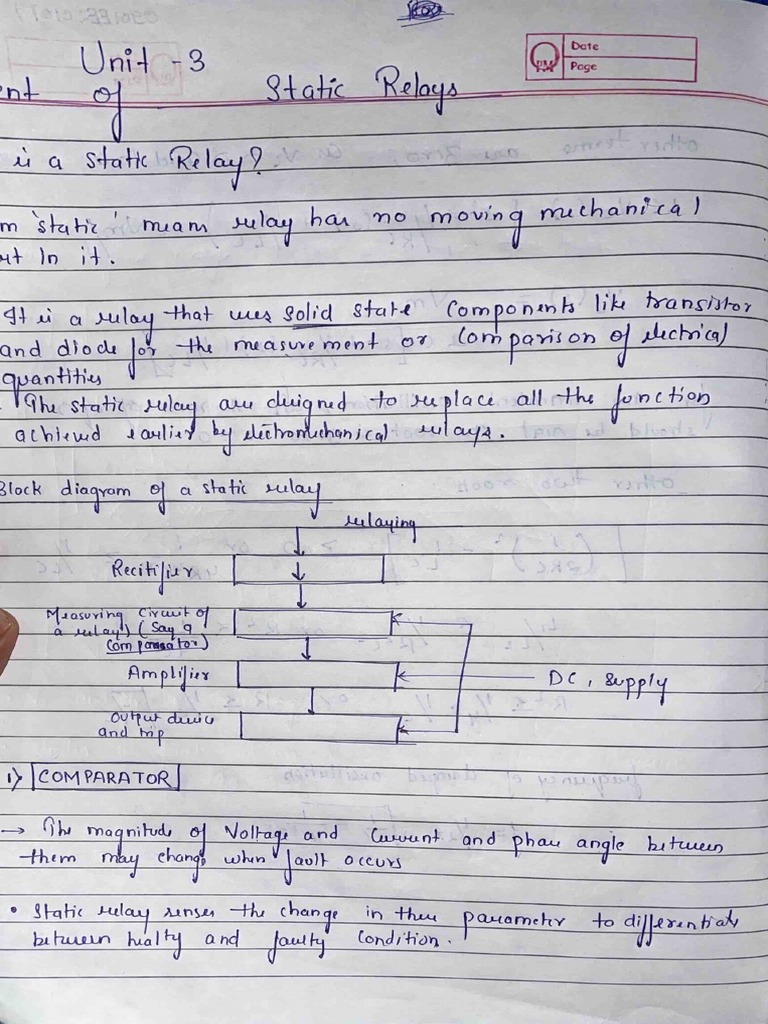 Date
Page
Unit - 3
nt of Static Relays
is a static Relay?
m 'static' means relay has no moving mechanical
rt In it.
It is a relay that uses solid state components like transistor
and diode for the measurement or comparison of electrical
quantities
The static relay are deigned to replace all the function
achieved earlier by electromechanical relays.
Block diagram of a static relay
relaying
Recitifier
Measuring Circuit of
a relay) (Say a
comparator)
Amplifier
DC, Supply
Output device
and trip
1) COMPARATOR
→ The magnitude of Voltage and Current and phase angle between
them may change when fault occurs
• Static relay senses the change in these parameter to differentiate
between healty and faulty Condition.